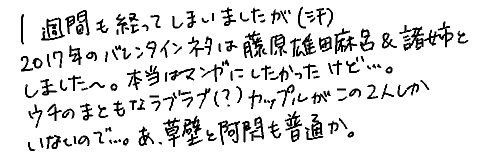 1週間も経ってしまいましたが(汗)
2017年のバレンタインネタは藤原雄田麻呂&諸姉と
しましたへ。本当はマンガにしたかったけど…。
ウチのまともなラブラブ(?)カップルがこの2人しか
いないので…。あ、草壁と阿閇も普通か。